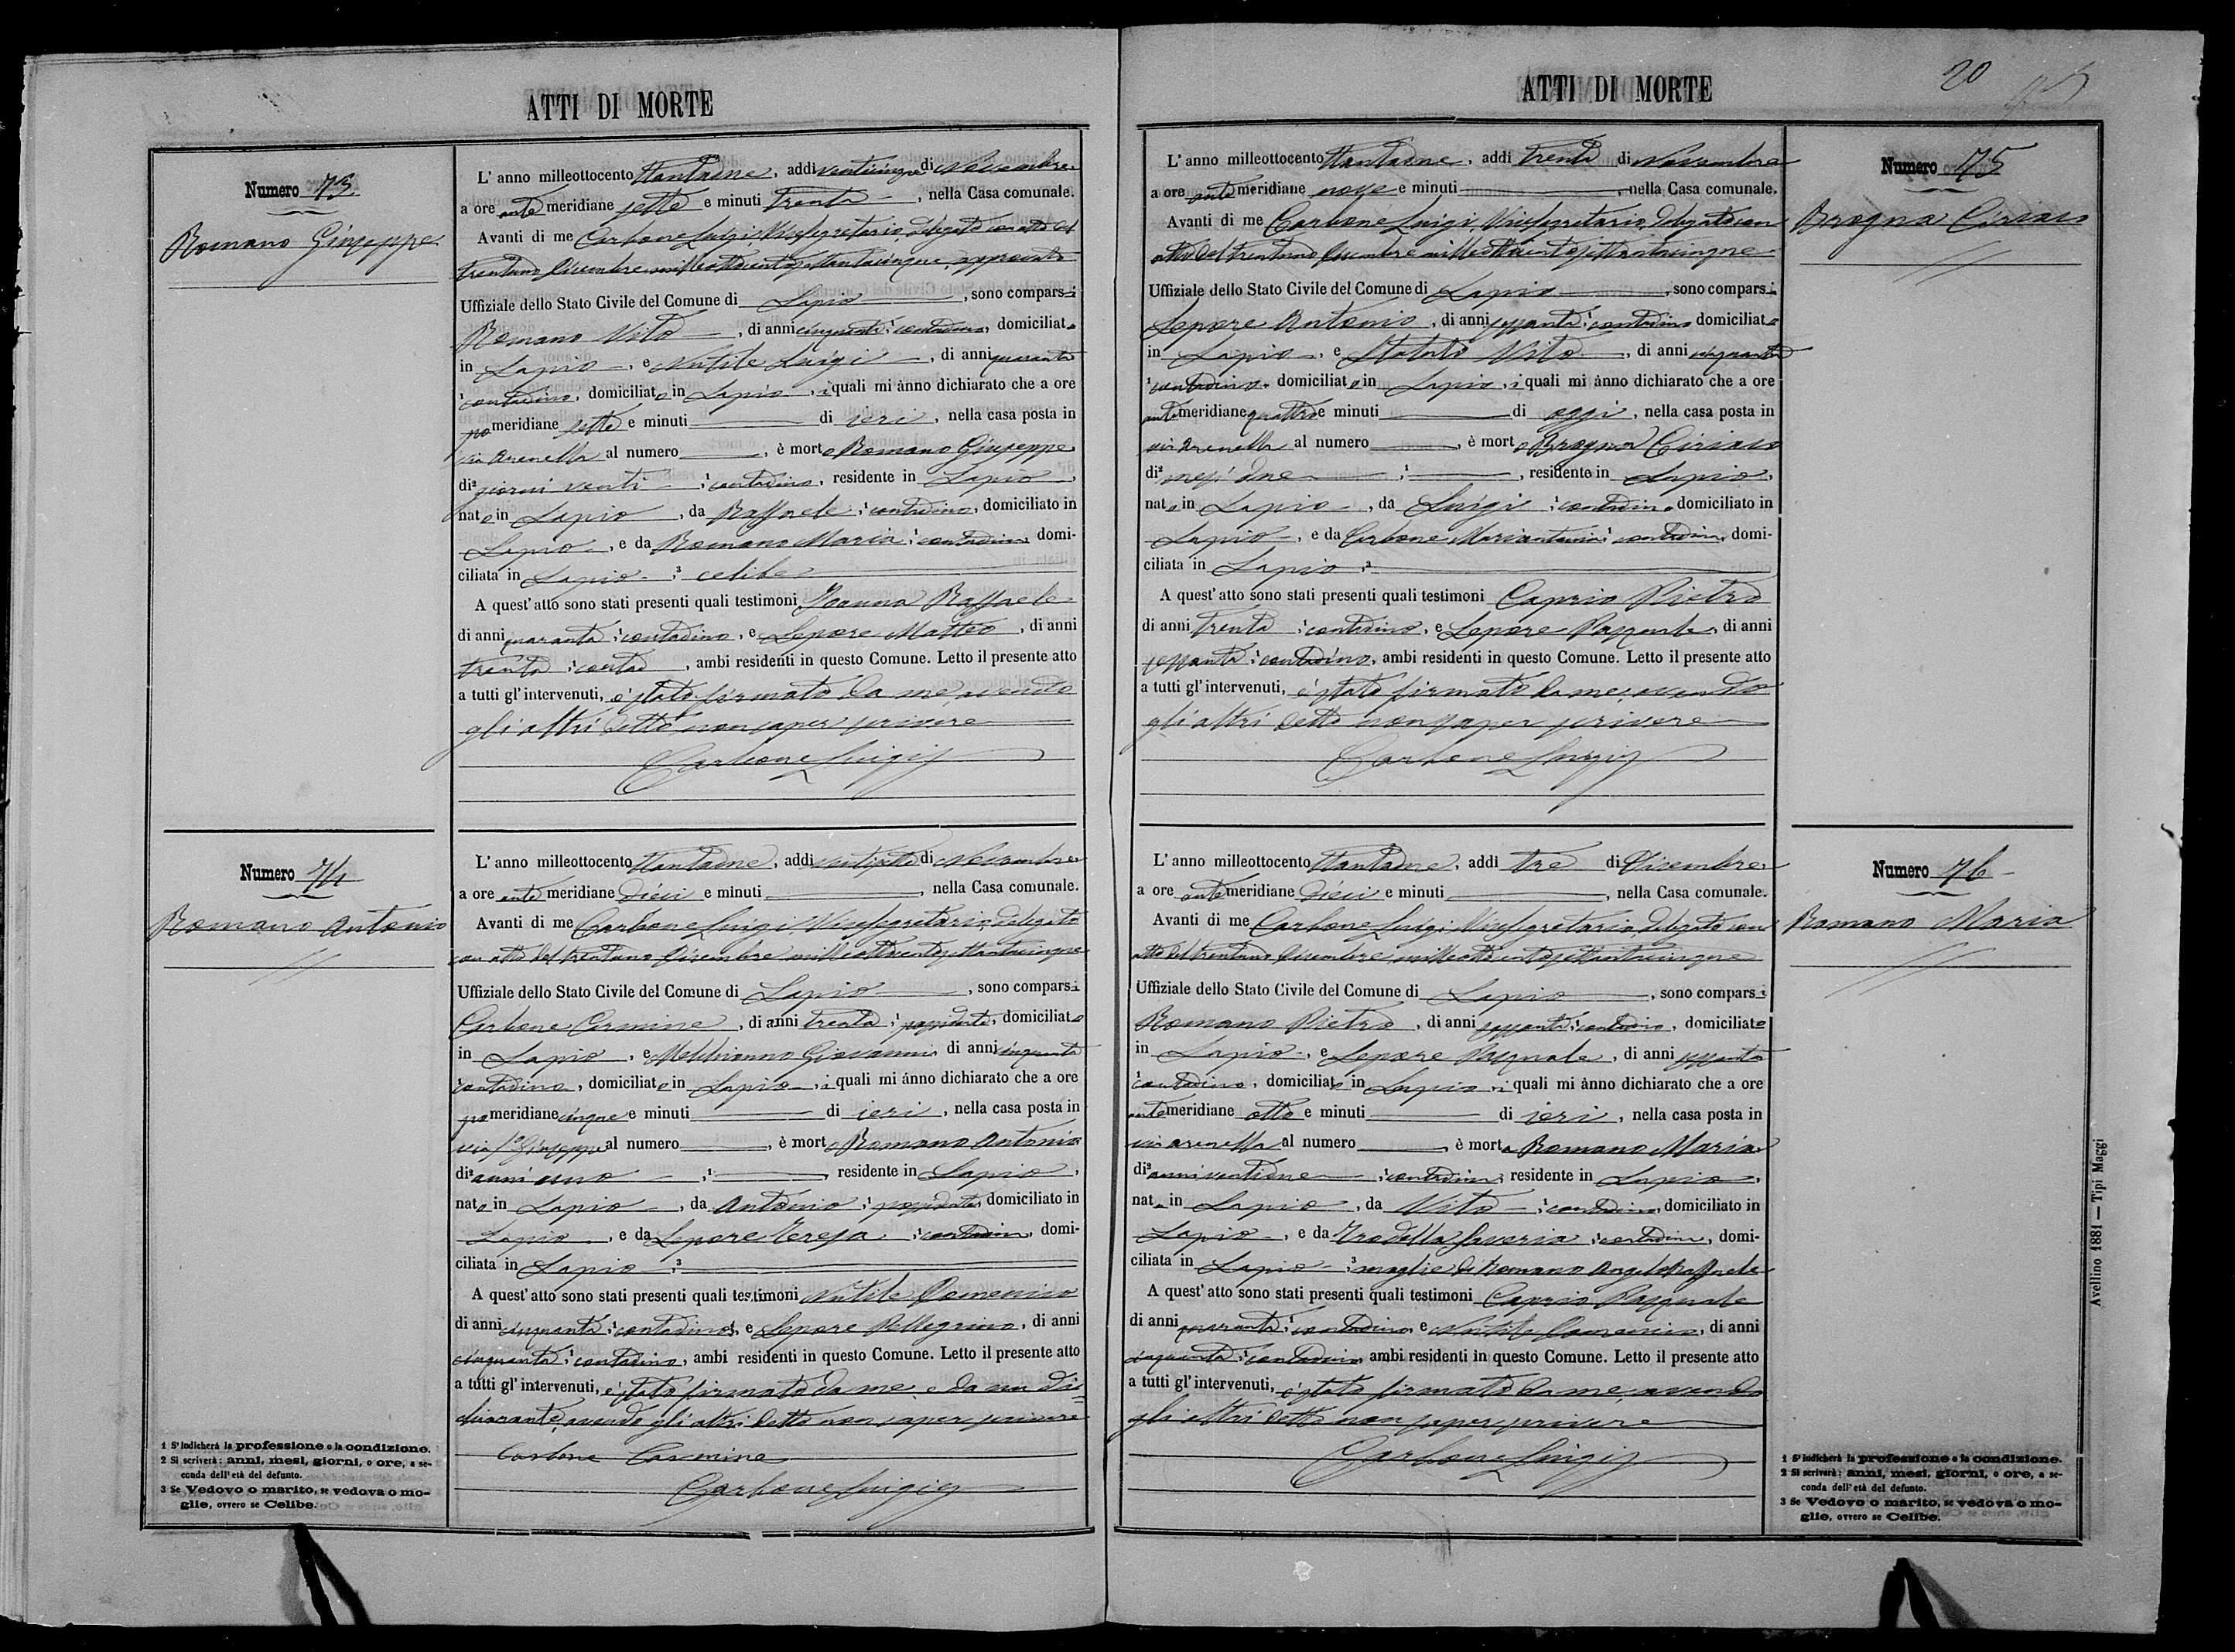 ATTI DI MORTE
Numero 73
Romano Giuseppe
L' anno milleottocento ttantadue, addi venticinque di Novembre
a ore ante meridiane sette e minuti trenta, nella Casa comunale.
Avanti di me Carbone Luigi, Vicesegretario, delegato con atto del
trentuno Dicembre milleottocentosettantacinque, approvato
Uffiziale dello Stato Civile del Comune di Lapio, sono comparsi
Romano Vito, di anni cinquanta ¹ contadino, domiciliato
in Lapio, e Nutile Luigi, di anni quaranta
¹ contadino, domiciliato in Lapio, i quali mi ànno dichiarato che a ore
pomeridiane sette e minuti di ieri, nella casa posta in
via Arenella al numero, è morto Romano Giuseppe
di² giorni venti ¹ contadino, residente in Lapio,
nato in Lapio, da Raffaele ¹ contadino, domiciliato in
Lapio, e da Romano Maria ¹ contadina, domi-
ciliata in Lapio ³ celibe
A quest' atto sono stati presenti quali testimoni Raffaele
di anni quaranta ¹ contadino, e Lepore Matteo, di anni
trenta ¹ contad, ambi residenti in questo Comune. Letto il presente atto
a tutti gl' intervenuti, è stato firmato da me, avendo
gli altri detto non saper scrivere
Carbone Luigi
Numero 74
Romano Antonio
L' anno milleottocento ttantadue, addi ventisette di Novembre
a ore ante meridiane dieci e minuti, nella Casa comunale.
Avanti di me Carbone Luigi Vicesegretario, delegato
con atto del trentuno Dicembre milleottocentosettantacinque
Uffiziale dello Stato Civile del Comune di Lapio, sono comparsi
Carbone Carmine, di anni trenta ¹ possidente, domiciliato
in Lapio, e Giovanni di anni cinquanta
¹ contadino, domiciliato in Lapio, i quali mi ànno dichiarato che a ore
pomeridiane cinque e minuti di ieri, nella casa posta in
via S. Giuseppe al numero, è morto Romano Antonio
di² anni uno ¹, residente in Lapio,
nato in Lapio, da Antonio ¹ possidente, domiciliato in
Lapio, e da Lepore Teresa ¹ contadina, domi-
ciliata in Lapio ³
A quest' atto sono stati presenti quali testimoni Nutile Domenico
di anni cinquanta ¹ contadino, e Lepore Pellegrino, di anni
cinquanta ¹ contadino, ambi residenti in questo Comune. Letto il presente atto
a tutti gl' intervenuti, è stato firmato da me e da un di=
chiarante, avendo gli altri detto non saper scrivere
Carbone Carmine
Carbone Luigi
1 S' indicherà la professione o la condizione.
2 Si scriverà: anni, mesi, giorni, o ore, a se-
conda dell'età del defunto.
3 Se Vedovo o marito, se vedova o mo-
glie, ovvero se Celibe.
ATTI DI MORTE
20
Numero 75
Brogna Ciriaco
L' anno milleottocento ttantadue, addi trenta di Novembre
a ore ante meridiane nove e minuti, nella Casa comunale.
Avanti di me Carbone Luigi, Vicesegretario, delegato con
atto del trentuno Dicembre milleottocentosettantacinque
Uffiziale dello Stato Civile del Comune di Lapio, sono comparsi
Lepore Antonio, di anni sessanta ¹ contadino domiciliato
in Lapio, e Vito, di anni cinquanta
¹ contadino, domiciliato in Lapio, i quali mi ànno dichiarato che a ore
antemeridiane quattro e minuti di oggi, nella casa posta in
via Arenella al numero, è morto Brogna Ciriaco
di² mesi due ¹, residente in Lapio,
nato in Lapio, da Luigi ¹ contadino domiciliato in
Lapio, e da Carbone Mariantonia ¹ contadina, domi-
ciliata in Lapio ³
A quest' atto sono stati presenti quali testimoni Caprio Pietro
di anni trenta ¹ contadino, e Lepore Pasquale, di anni
sessanta ¹ contadino, ambi residenti in questo Comune. Letto il presente atto
a tutti gl' intervenuti, è stato firmato da me, avendo
gli altri detto non saper scrivere
Carbone Luigi
Numero 76
Romano Maria
L' anno milleottocento ttantadue, addi tre di Dicembre
a ore ante meridiane dieci e minuti, nella Casa comunale.
Avanti di me Carbone Luigi, Vicesegretario, delegato con
atto del trentuno Dicembre milleottocentosettantacinque
Uffiziale dello Stato Civile del Comune di Lapio, sono comparsi
Romano Pietro, di anni sessanta ¹ contadino, domiciliato
in Lapio, e Lepore Pasquale, di anni sessanta
¹ contadino, domiciliato in Lapio, i quali mi ànno dichiarato che a ore
antemeridiane otto e minuti di ieri, nella casa posta in
via Arenella al numero, è morta Romano Maria
di² anni ventidue ¹ contadina, residente in Lapio,
nata in Lapio, da Vito ¹ contadino, domiciliato in
Lapio, e da Saveria ¹ contadina, domi-
ciliata in Lapio ³ moglie di Romano Angelo Raffaele
A quest' atto sono stati presenti quali testimoni Caprio Pasquale
di anni quaranta ¹ contadino, e Nutile Domenico, di anni
cinquanta ¹ contadino, ambi residenti in questo Comune. Letto il presente atto
a tutti gl' intervenuti, è stato firmato da me, avendo
gli altri detto non saper scrivere
Carbone Luigi
1 S' indicherà la professione o la condizione.
2 Si scriverà: anni, mesi, giorni, o ore, a se-
conda dell'età del defunto.
3 Se Vedovo o marito, se vedova o mo-
glie, ovvero se Celibe.
Avellino 1881 — Tipi Maggi